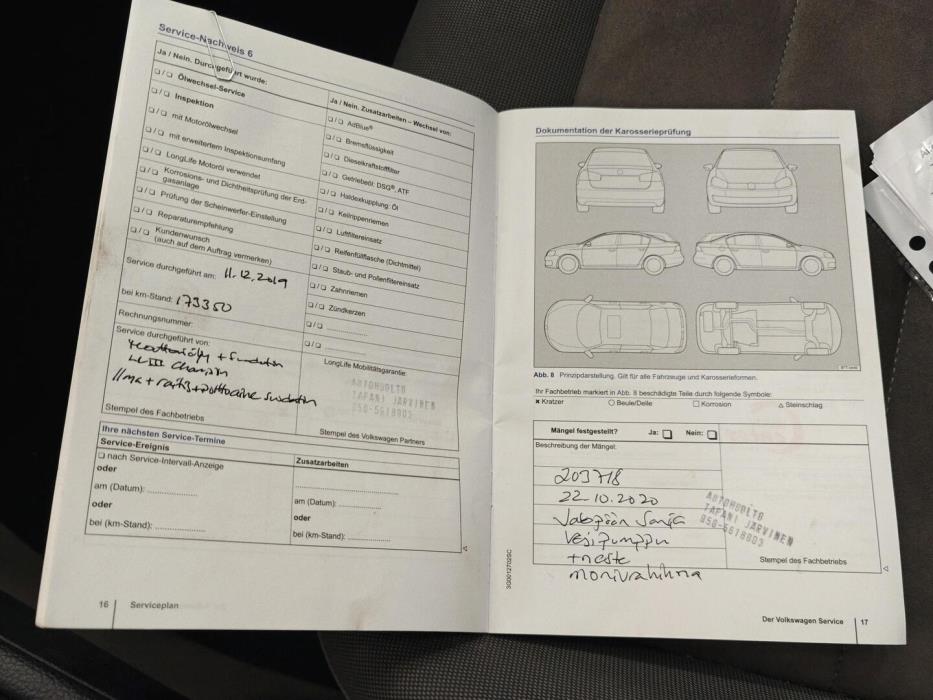 Service-Nachweis 6
Ja / Nein. Durchgeführt wurde:
❏ / ❏ Ölwechsel-Service
❏ / ❏ Inspektion
❏ / ❏ mit Motorölwechsel
❏ / ❏ mit erweitertem Inspektionsumfang
❏ / ❏ LongLife Motoröl verwendet
❏ / ❏ Korrosions- und Dichtheitsprüfung der Erd-
gasanlage
❏ / ❏ Prüfung der Scheinwerfer-Einstellung
❏ / ❏ Reparaturempfehlung
❏ / ❏ Kundenwunsch
(auch auf dem Auftrag vermerken)
Service durchgeführt am: 11.12.2019
bei km-Stand: 173350
Rechnungsnummer:
Service durchgeführt von:
+ Suodatin
Ilma + raitis + polttoaine suodatin
Stempel des Fachbetriebs
Ja / Nein. Zusatzarbeiten – Wechsel von:
❏ / ❏ AdBlue®
❏ / ❏ Bremsflüssigkeit
❏ / ❏ Dieselkraftstofffilter
❏ / ❏ Getriebeöl: DSG®, ATF
❏ / ❏ Haldexkupplung: Öl
❏ / ❏ Keilrippenriemen
❏ / ❏ Luftfiltereinsatz
❏ / ❏ Reifenfüllflasche (Dichtmittel)
❏ / ❏ Staub- und Pollenfiltereinsatz
❏ / ❏ Zahnriemen
❏ / ❏ Zündkerzen
❏ / ❏
❏ / ❏
LongLife Mobilitätsgarantie:
AUTOHUOLTO
TAPANI JARVINEN
050-5618003
Stempel des Volkswagen Partners
Ihre nächsten Service-Termine
Service-Ereignis
❏ nach Service-Intervall-Anzeige
oder
am (Datum):
oder
bei (km-Stand):
Zusatzarbeiten
am (Datum):
oder
bei (km-Stand):
16 Serviceplan
Dokumentation der Karosserieprüfung
Abb. 8 Prinzipdarstellung. Gilt für alle Fahrzeuge und Karosserieformen.
Ihr Fachbetrieb markiert in Abb. 8 beschädigte Teile durch folgende Symbole:
✖ Kratzer ○ Beule/Delle □ Korrosion △ Steinschlag
Mängel festgestellt? Ja: ❏ Nein: ❏
Beschreibung der Mängel:
203718
22.10.2020
Jakopään Sarja
Vesipumppu
+ neste
monivahihna
AUTOHUOLTO
TAPANI JARVINEN
050-5618003
Stempel des Fachbetriebs
3G0012702SC
Der Volkswagen Service 17